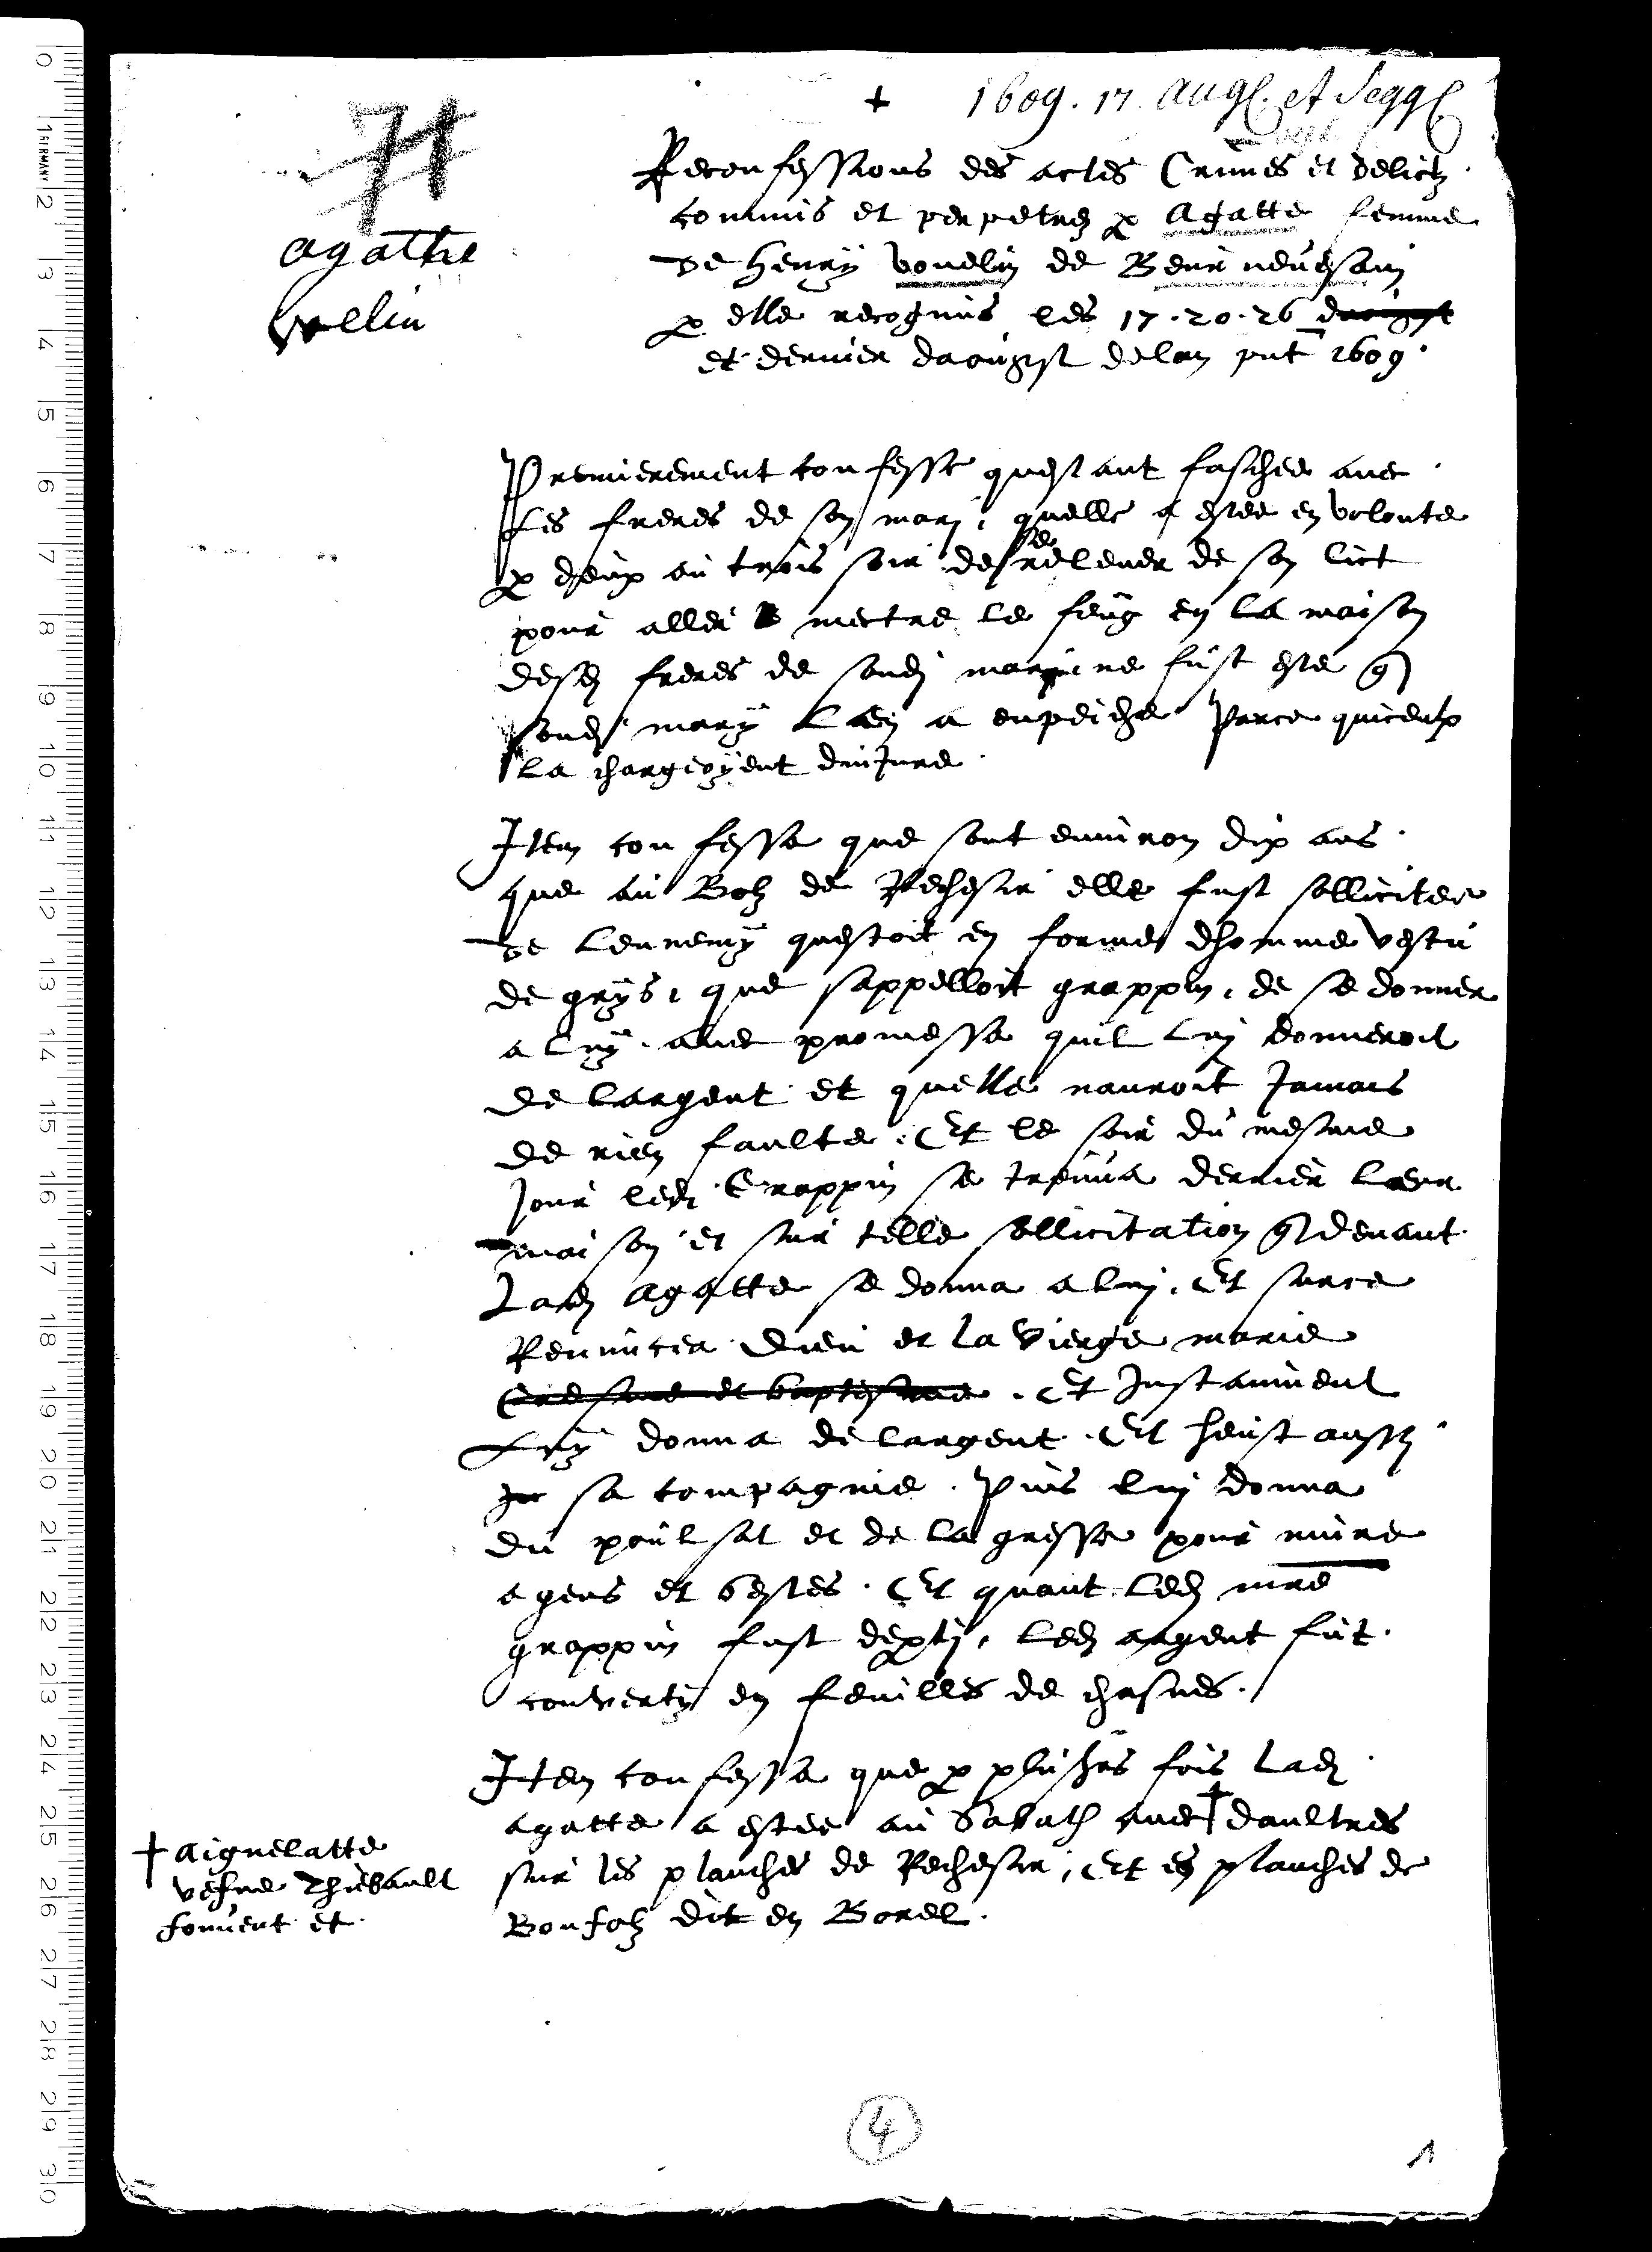 + 1609. 17. Aug. et seqq
71
agathe
vellin
Reconfessions des actes Crimes et delictz
commis et perpetrez p Agatte femme
de Henry vouelin de Beurneuesain
p elle recognus les 17. 20. 26 daougst
et dernier daougst de lan pnt 1609.
Premierement confesse questant faschee auec
Les freres de son mary, quelle a estee en volonte
p deux ou trois soir de se relever de son lict
pour aller mectre le feug en la maison
desd freres de sond mary, ne fust este q
sond mary Len a enpeiche Parce quiceulx
la chargeoyent dinjure.
Item confesse que sont enuiron dix ans
que au Bolz de Rechesir elle fust sollicitee
de Lennemy questoit en forme dhomme vestu
de grys, que sappelloit grappin, de se donner
a luy, auec promesse quil luy donneroit
de largent et quelle nauroit Jamais
de rien faulte. Et le soir du mesme
Jour led Grappin se trouua derrier Leur
maison et sur telle sollicitation q deuant
Lad Agatte se donna a luy. Et surce
Renuncea Dieu et la Vierge marie
Cresme et baptesme. Et Instamment
Luy donna de largent. Et heust aussy
sa compagnie. Puis luy donna
du poulsat et de la gresse pour nuire
a gens et bestes. Et quant led mre
grappin fust depti, led argent fut
conuerty en feuilles de chasnes.
Item confesse que p plusrs fois Lad
agatte a estee au Sabath auec † daultres
sur les planches de Rechesir, Et es planches de
Bonfolz dit en Borel.
† aignelatte
vefue Thiebault
fonuent et
4
1